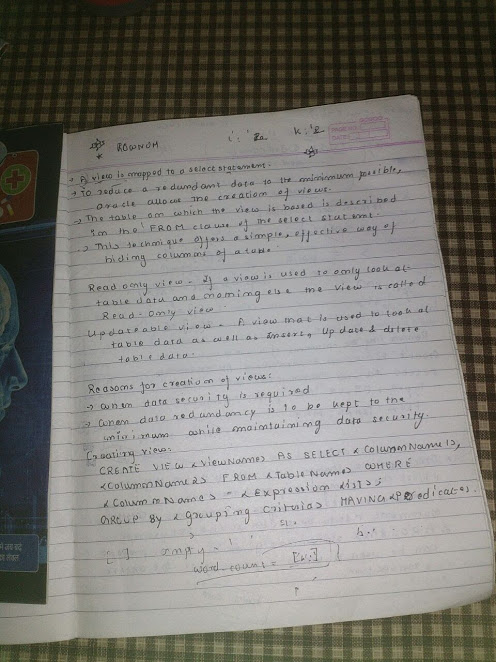 ROWNUM
→ A view is mapped to a select statement.
→ To reduce a redundant data to the minimum possible,
oracle allows the creation of views.
→ The table on which the view is based is described
in the FROM clause of the select statement.
→ This technique offers a simple, effective way of
hiding columns of a table.
Read only view - If a view is used to only look at
table data and nothing else the view is called
Read-Only view
Updateable view - A view that is used to look at
table data as well as insert, update & delete
table data.
Reasons for creation of views:
→ When data security is required
→ When data redundancy is to be kept to the
minimum while maintaining data security.
Creating view:
CREATE VIEW <ViewName> AS SELECT <ColumnName1>,
<ColumnName2> FROM <TableName> WHERE
<ColumnName> = <Expression List>;
GROUP By <Grouping Criteria> HAVING <Predicate>
[ ] empty
word-count =